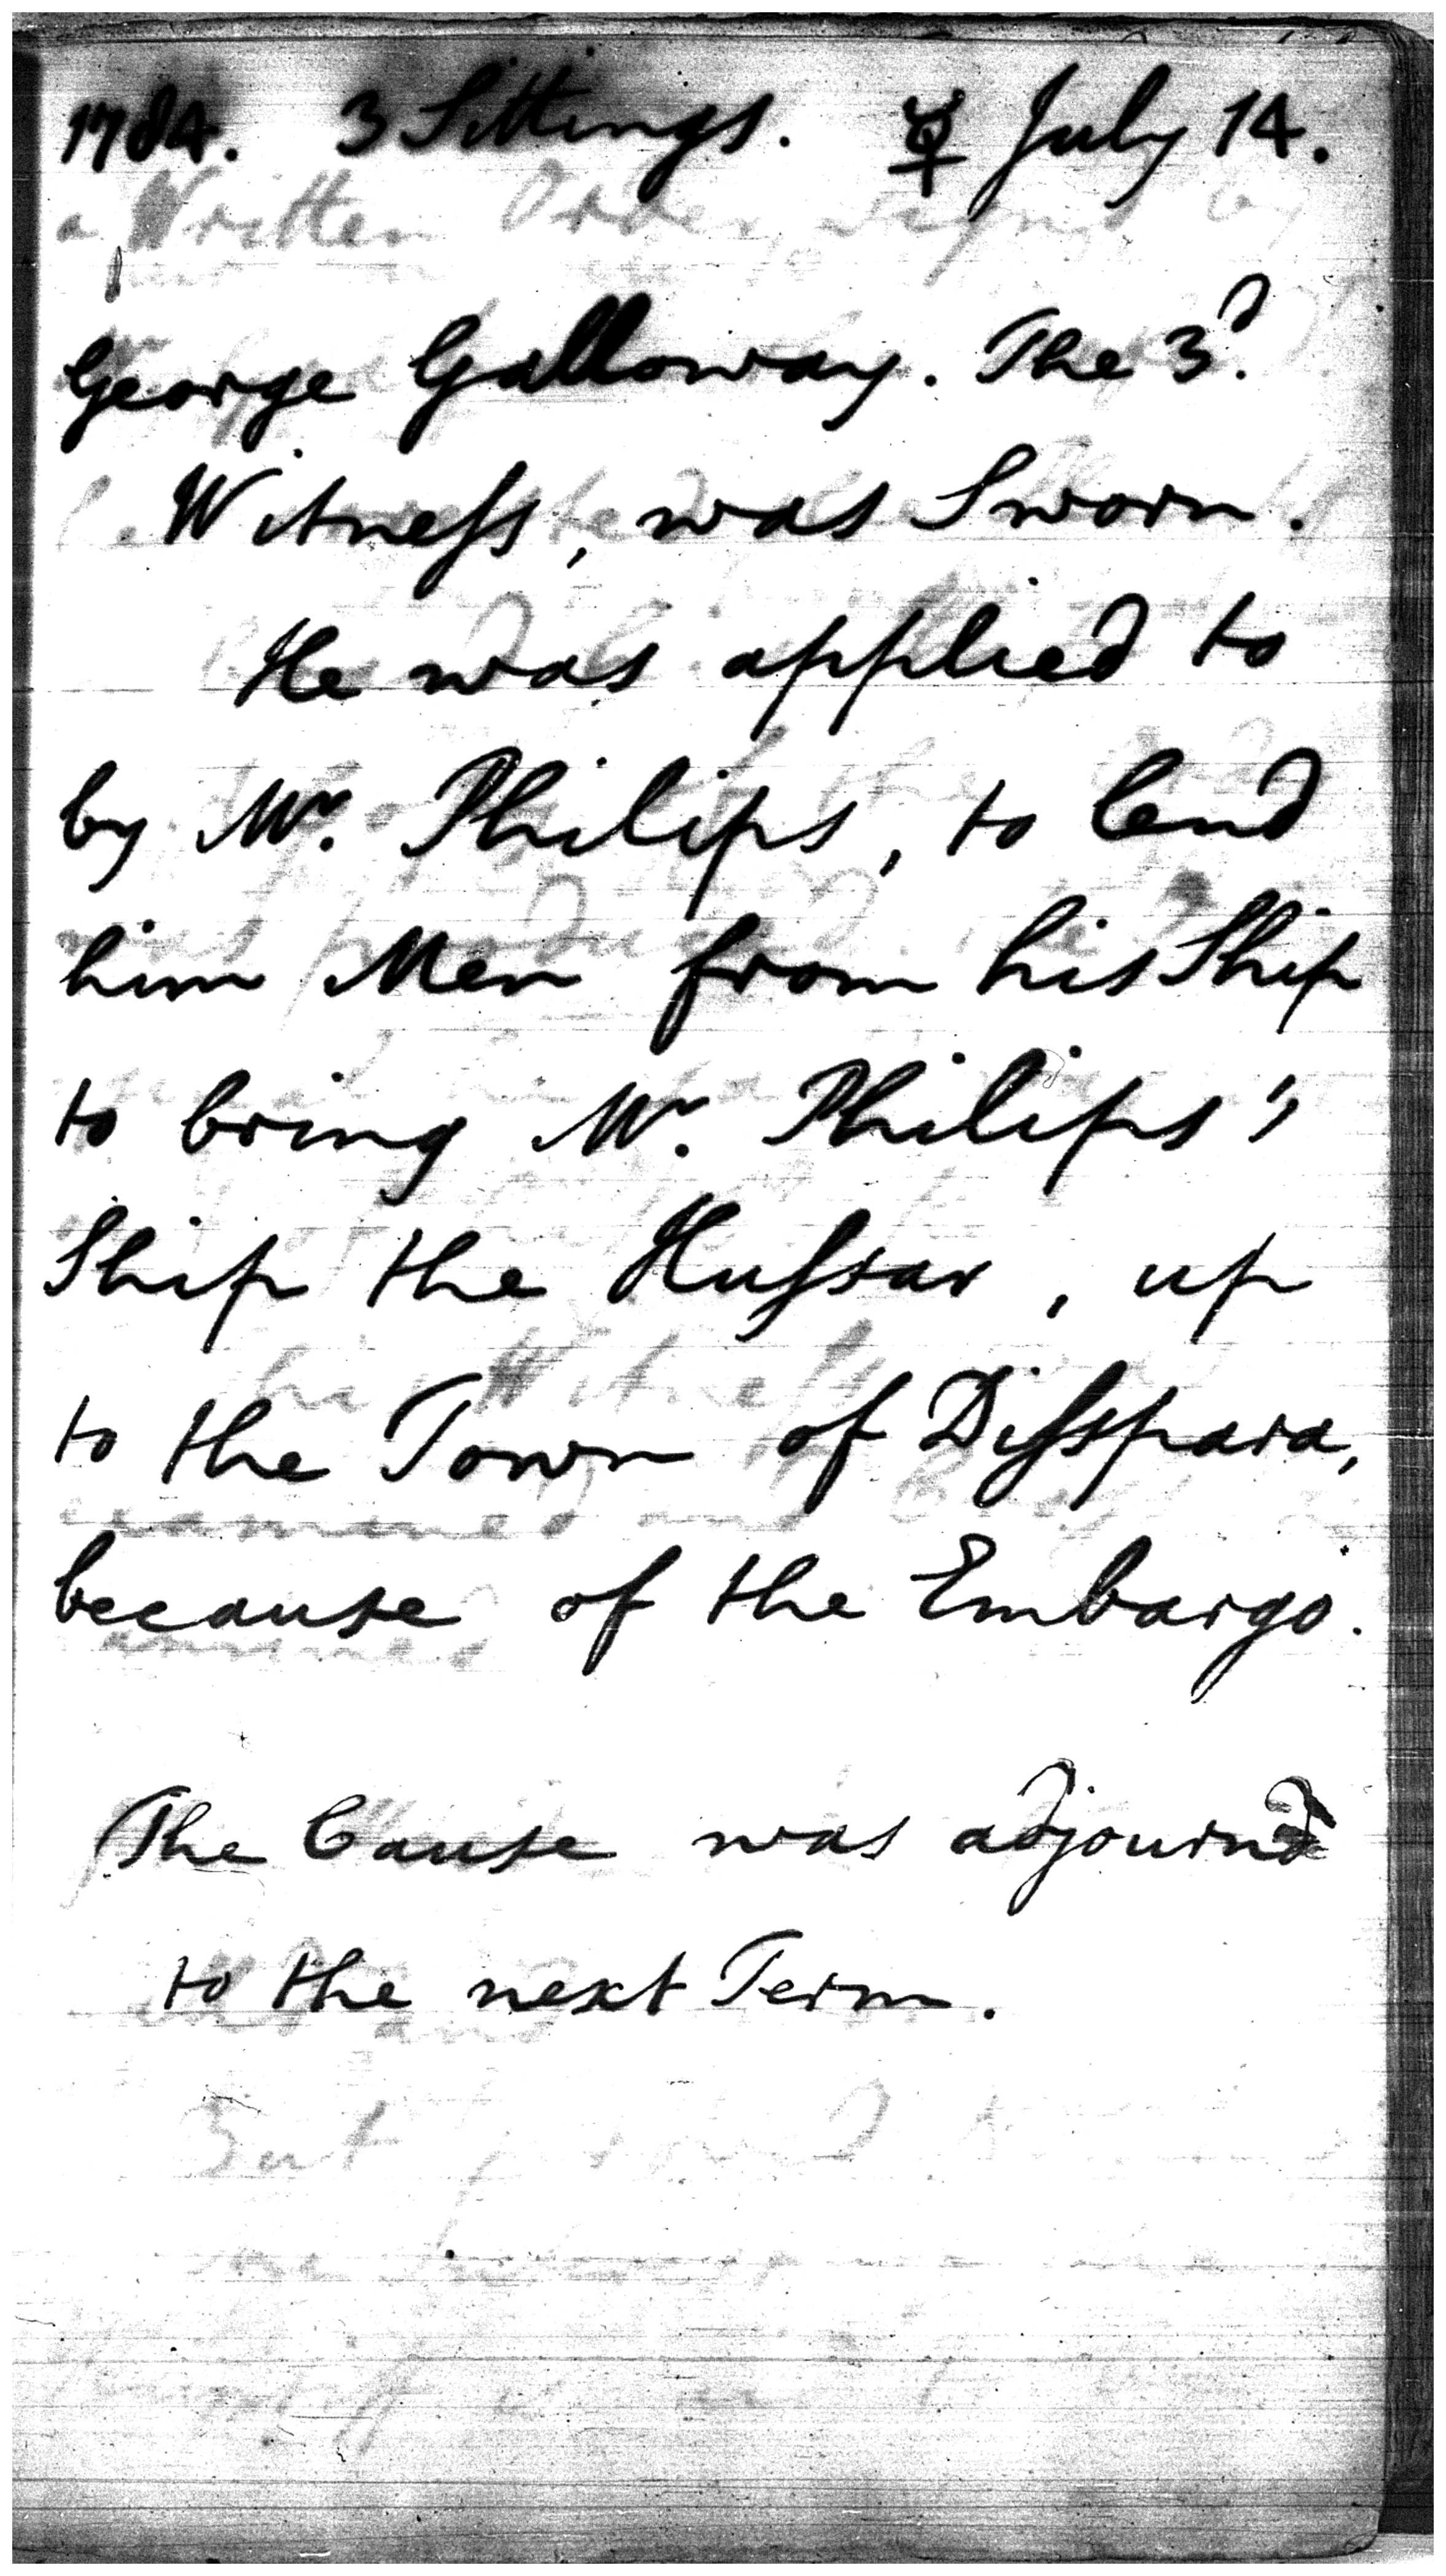 1784. 3 Sittings. ☿ July 14.
George Galloway. The 3d.
Witneſs, was Sworn.
He was applied to
by Mr. Philips, to lend
him Men from his Ship
to bring Mr. Philips's
Ship the Huſsar, up
to the Town of Diſspara,
because of the Embargo.
The Cause was adjournd
to the next Term.